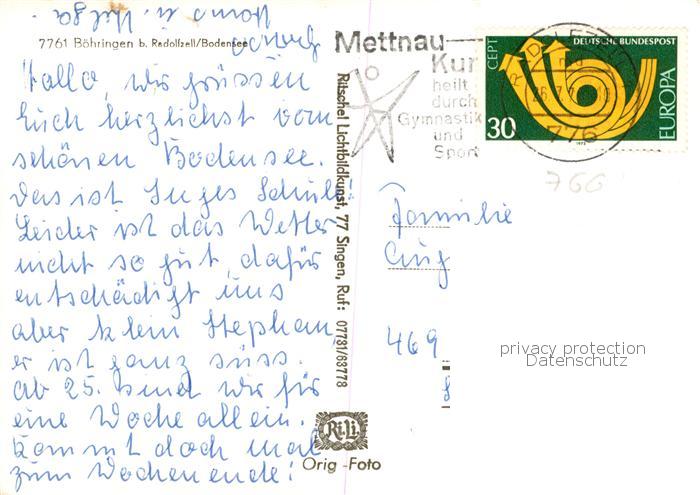 7761 Böhringen b. Radolfzell/Bodensee
Hallo, wir grüssen
Euch herzlichst vom
schönen Bodensee.
Das ist Inges Schule.
Leider ist das Wetter
nicht so gut, dafür
entschädigt uns
aber klein Stephan,
er ist ganz süss.
Ab 25. sind wir für
eine Woche allein.
Kommt doch mal
zum Wochenende!
Hans u. Helga
Ritschel Lichtbildkunst, 77 Singen, Ruf: 07731/63778
Ri.li.
Orig-Foto
Mettnau-
Kur
heilt
durch
Gymnastik
und
Sport
CEPT
DEUTSCHE BUNDESPOST
EUROPA
30
1973
776
766
Familie
469
privacy protection
Datenschutz